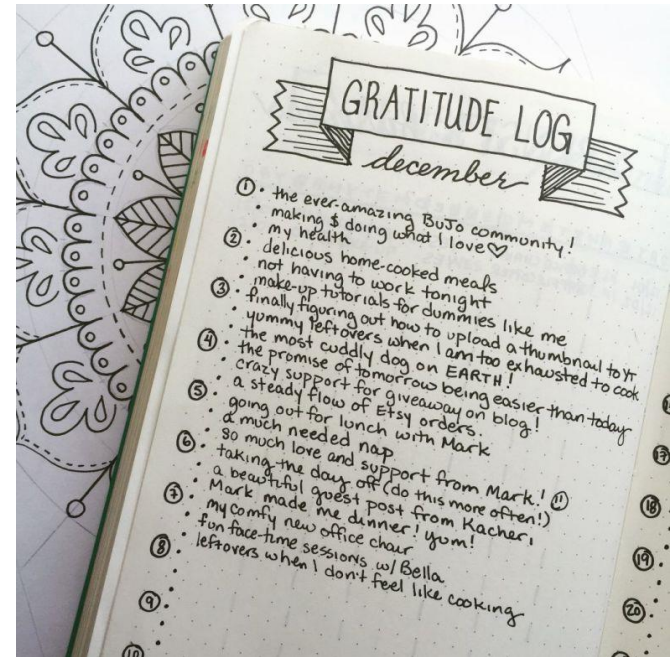 GRATITUDE LOG
december
① • the ever-amazing BuJo community!
• making $ doing what I love ♡
• my health
② • delicious home-cooked meals
• not having to work tonight
• make-up tutorials for dummies like me
③ • finally figuring out how to upload a thumbnail to YT
• yummy leftovers when I am too exhausted to cook
• the most cuddly dog on EARTH!
④ • the promise of tomorrow being easier than today
• crazy support for giveaway on blog!
• a steady flow of Etsy orders.
⑤ • going out for lunch with Mark
• a much needed nap
• so much love and support from Mark! :)
⑥ • taking the day off (do this more often!)
• a beautiful guest post from Kacheri
• Mark made me dinner! yum!
⑦ • my comfy new office chair
• fun face-time sessions w/ Bella
• leftovers when I don't feel like cooking
⑧
⑨
⑩
⑰
⑱
⑲
⑳